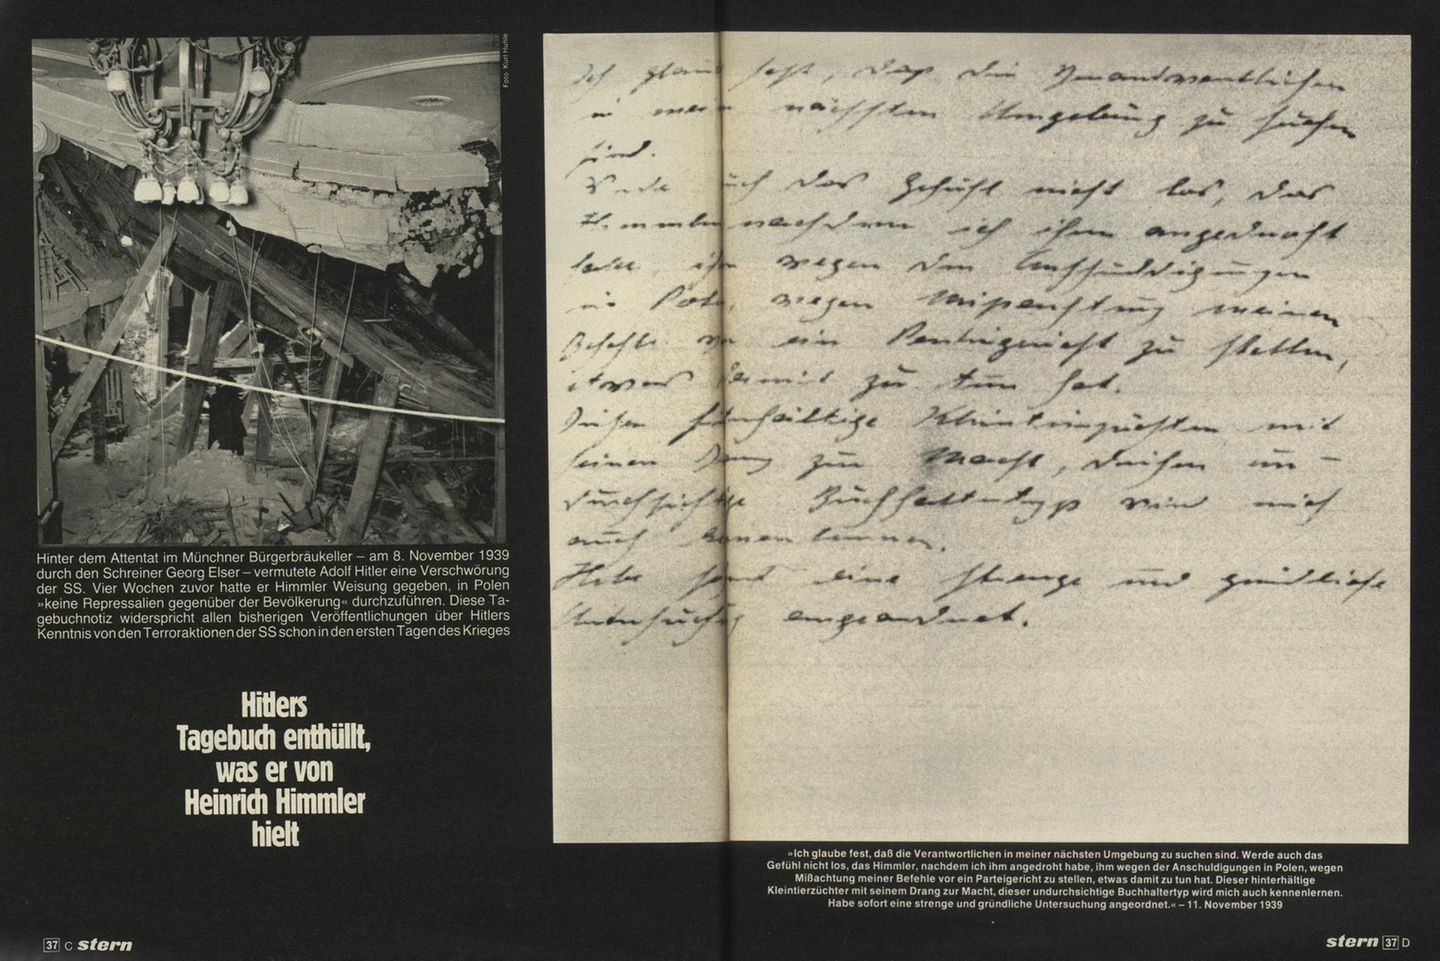 Foto: Kurt Huhle
Hinter dem Attentat im Münchner Bürgerbräukeller – am 8. November 1939
durch den Schreiner Georg Elser – vermutete Adolf Hitler eine Verschwörung
der SS. Vier Wochen zuvor hatte er Himmler Weisung gegeben, in Polen
»keine Repressalien gegenüber der Bevölkerung« durchzuführen. Diese Ta-
gebuchnotiz widerspricht allen bisherigen Veröffentlichungen über Hitlers
Kenntnis von den Terroraktionen der SS schon in den ersten Tagen des Krieges
Hitlers
Tagebuch enthüllt,
was er von
Heinrich Himmler
hielt
37 C stern
Ich glaube fest, daß die Verantwortlichen
in meiner nächsten Umgebung zu suchen
sind.
Werde auch das Gefühl nicht los, das
Himmler nachdem ich ihm angedroht
habe, ihn wegen den Anschuldigungen
in Polen, wegen Mißachtung meiner
Befehle vor ein Parteigericht zu stellen,
etwas damit zu tun hat.
Dieser hinterhältige Kleintierzüchter mit
seinem Drang zur Macht, dieser un-
durchsichtige Buchhaltertyp wird mich
auch kennen lernen.
Habe sofort eine strenge und gründliche
Untersuchung angeordnet.
»Ich glaube fest, daß die Verantwortlichen in meiner nächsten Umgebung zu suchen sind. Werde auch das
Gefühl nicht los, das Himmler, nachdem ich ihm angedroht habe, ihm wegen der Anschuldigungen in Polen, wegen
Mißachtung meiner Befehle vor ein Parteigericht zu stellen, etwas damit zu tun hat. Dieser hinterhältige
Kleintierzüchter mit seinem Drang zur Macht, dieser undurchsichtige Buchhaltertyp wird mich auch kennenlernen.
Habe sofort eine strenge und gründliche Untersuchung angeordnet.« – 11. November 1939
stern 37 D